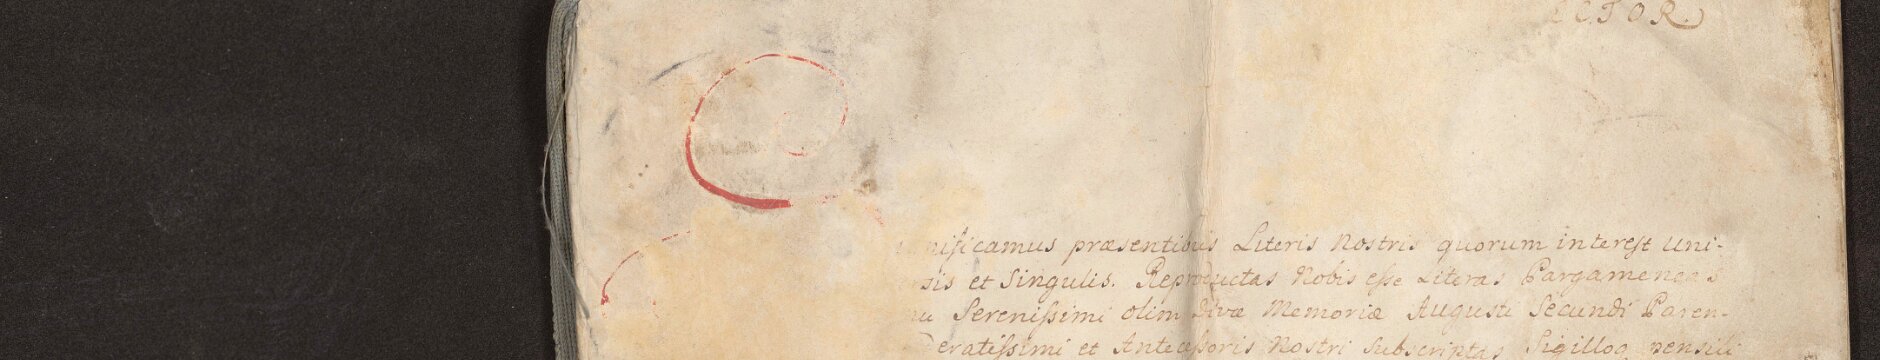 ECTOR.
nificamus præsentibus Literis Nostris quorum interest Uni-
sis et Singulis. Reproductas Nobis esse Literas Pargameneas
Serenissimi olim Divæ Memoriæ Augusti Secundi Paren-
deratissimi et Antecessoris Nostri Subscriptas Sigilloq pensili